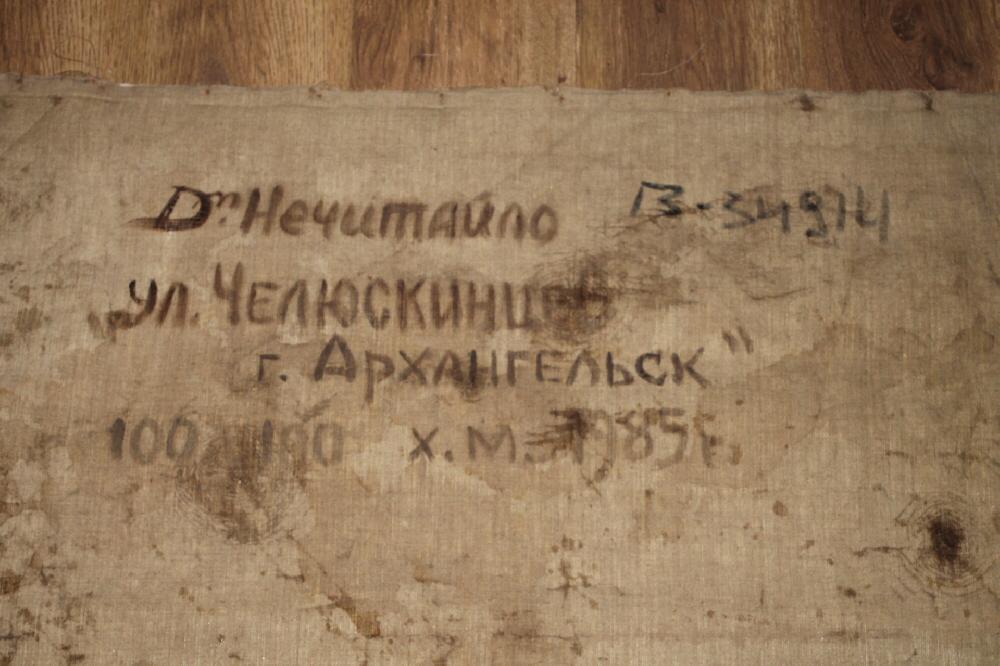 Dm. Нечитайло В-34974
„ул. Челюскинцев
г. Архангельск"
100 100 х.м. 1985г.